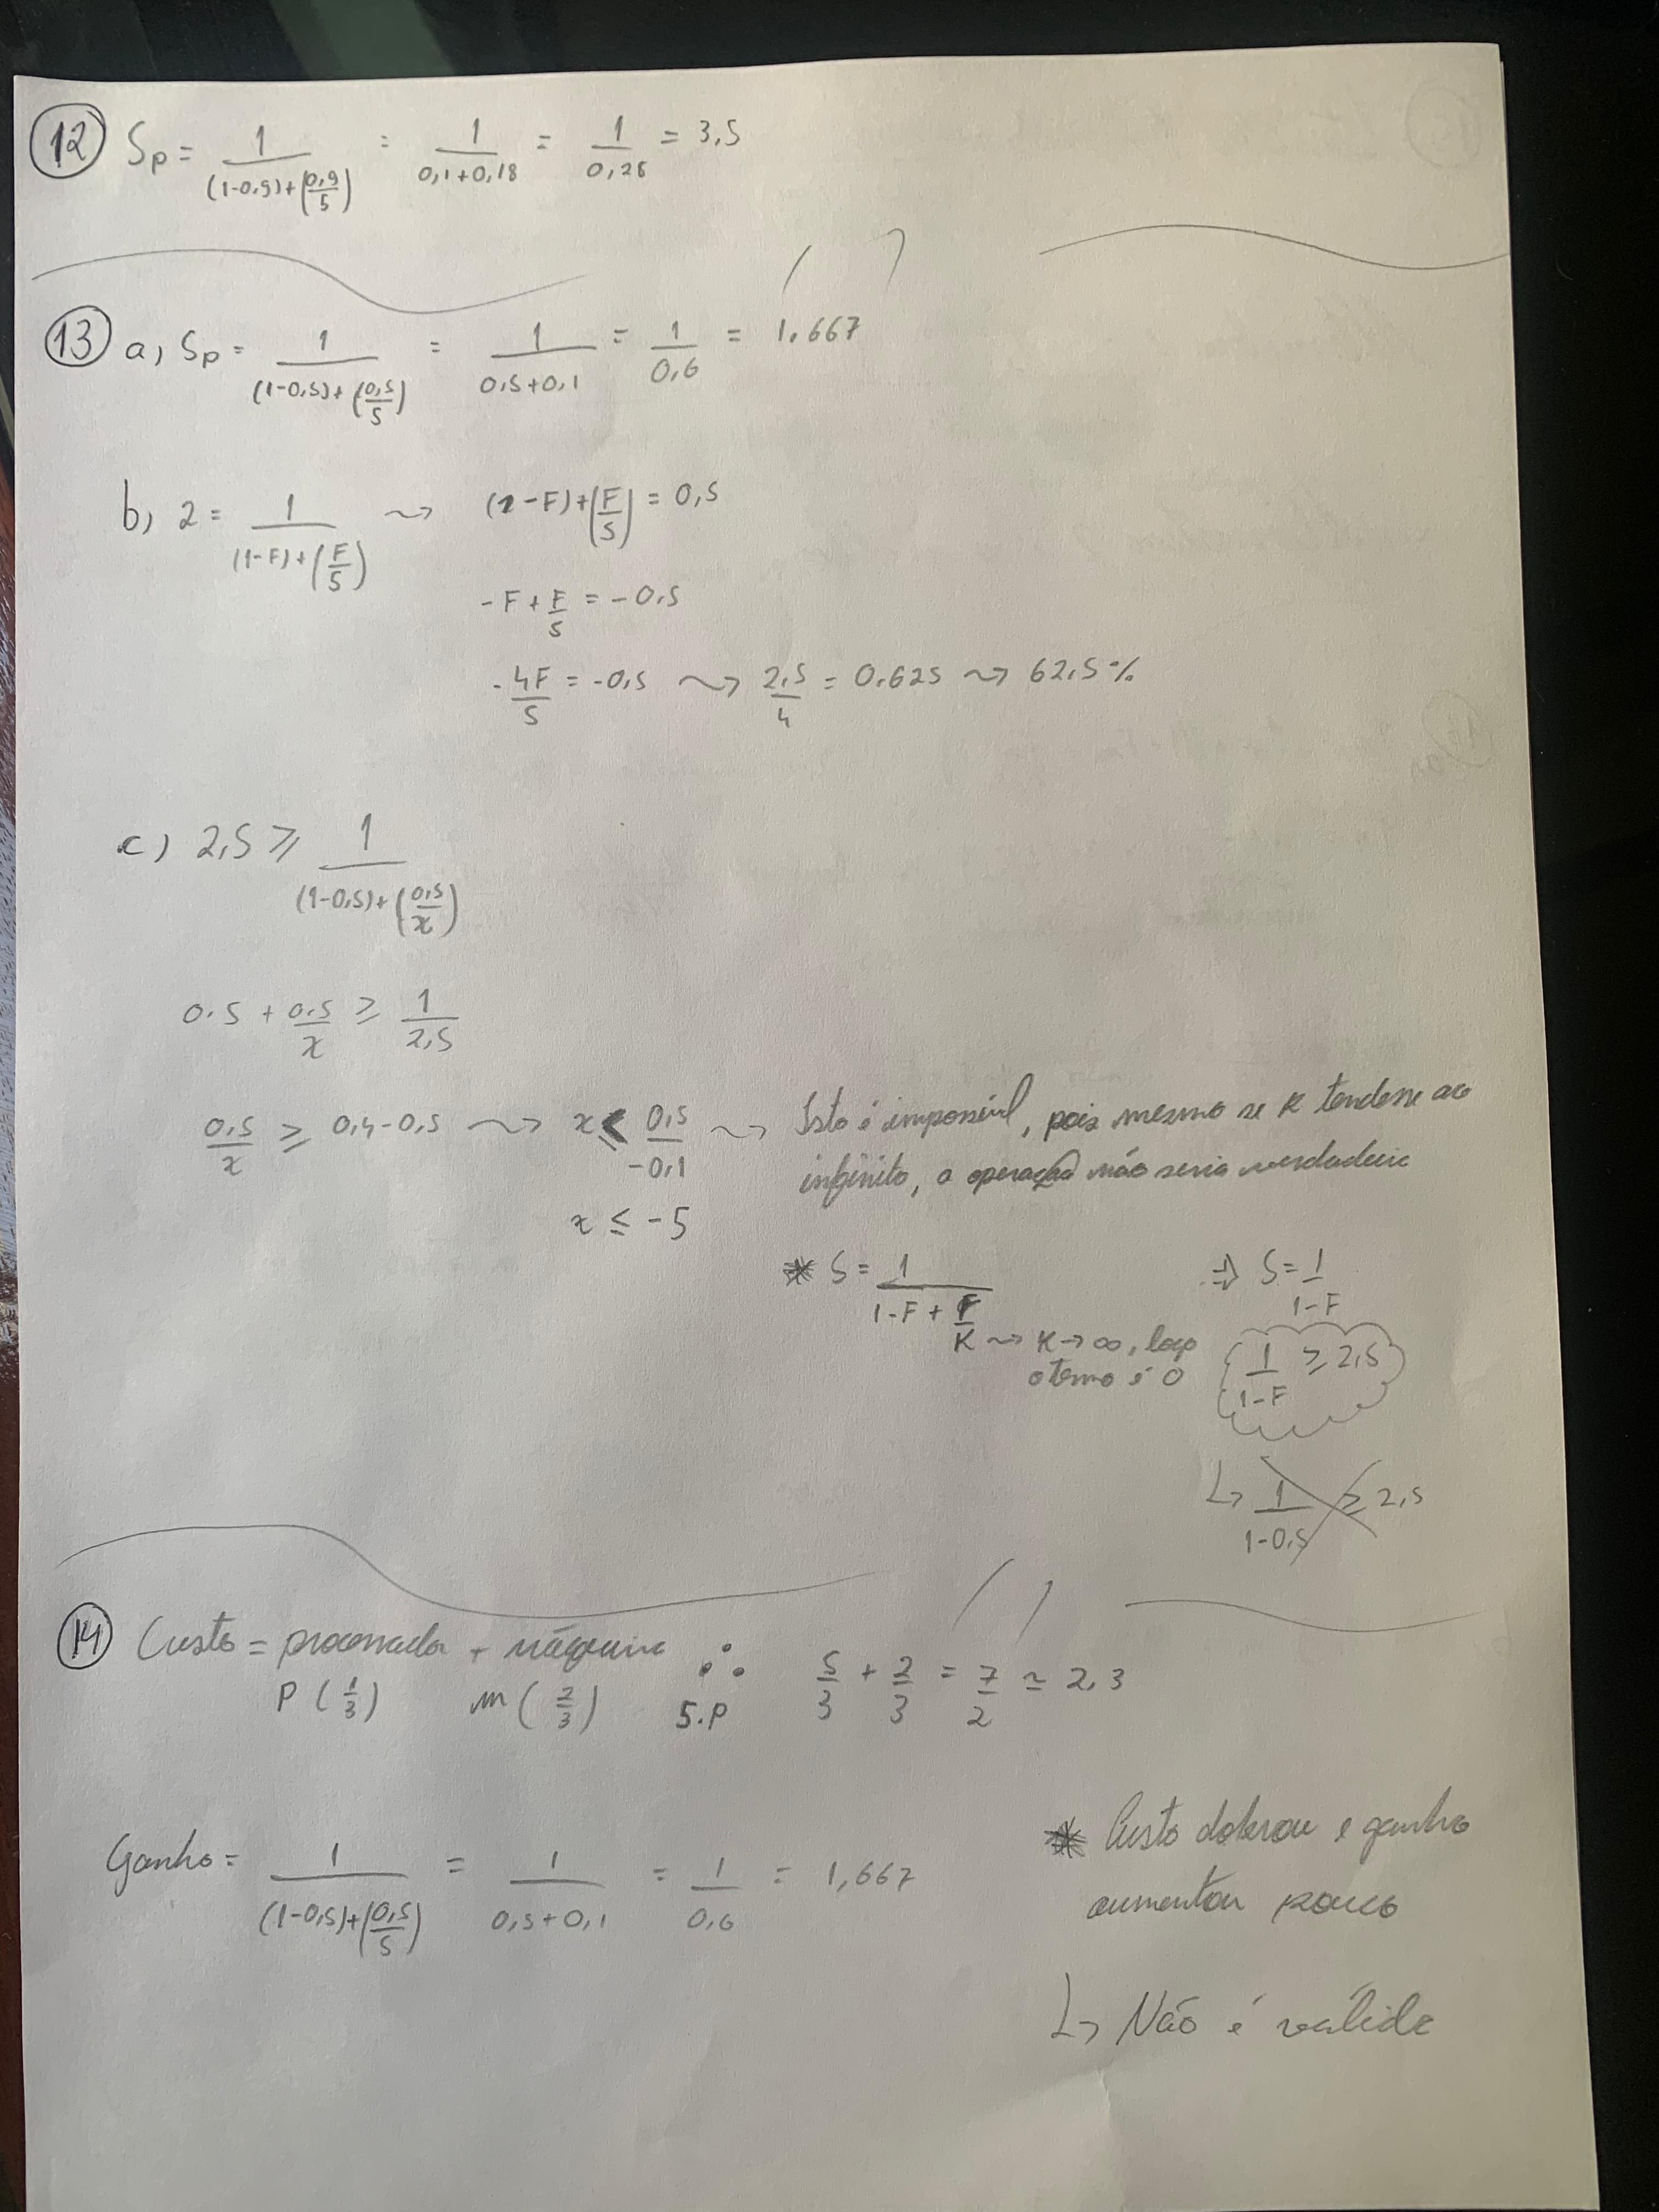 12 Sp = 1/((1-0,9)+(0,9/5)) = 1/(0,1+0,18) = 1/0,28 = 3,5
13 a) Sp = 1/((1-0,5)+(0,5/5)) = 1/(0,5+0,1) = 1/0,6 = 1,667
b) 2 = 1/((1-F)+(F/5)) ⤳ (1-F)+(F/5) = 0,5
-F + F/5 = -0,5
-4F/5 = -0,5 ⤳ 2,5/4 = 0,625 ⤳ 62,5%
c) 2,5 ≥ 1/((1-0,5)+(0,5/x))
0,5 + 0,5/x ≥ 1/2,5
0,5/x ≥ 0,4-0,5 ⤳ x ≤ 0,5/-0,1 ⤳ Isto é impossível, pois mesmo se K tendesse ao
infinito, a operação não seria verdadeira
x ≤ -5
* S = 1/(1-F + F/K) ⤳ K → ∞, logo
o termo é 0
⇒ S = 1/(1-F)
1/(1-F) ≥ 2,5
↳ 1/(1-0,5) ≥ 2,5
14 Custo = processador + máquina ∴ 5/3 + 2/3 = 7/2 ≃ 2,3
P (1/3) m (2/3) 5.P
Ganho = 1/((1-0,5)+(0,5/5)) = 1/(0,5+0,1) = 1/0,6 = 1,667
* Custo dobrou e ganho
aumentou pouco
↳ Não é válido